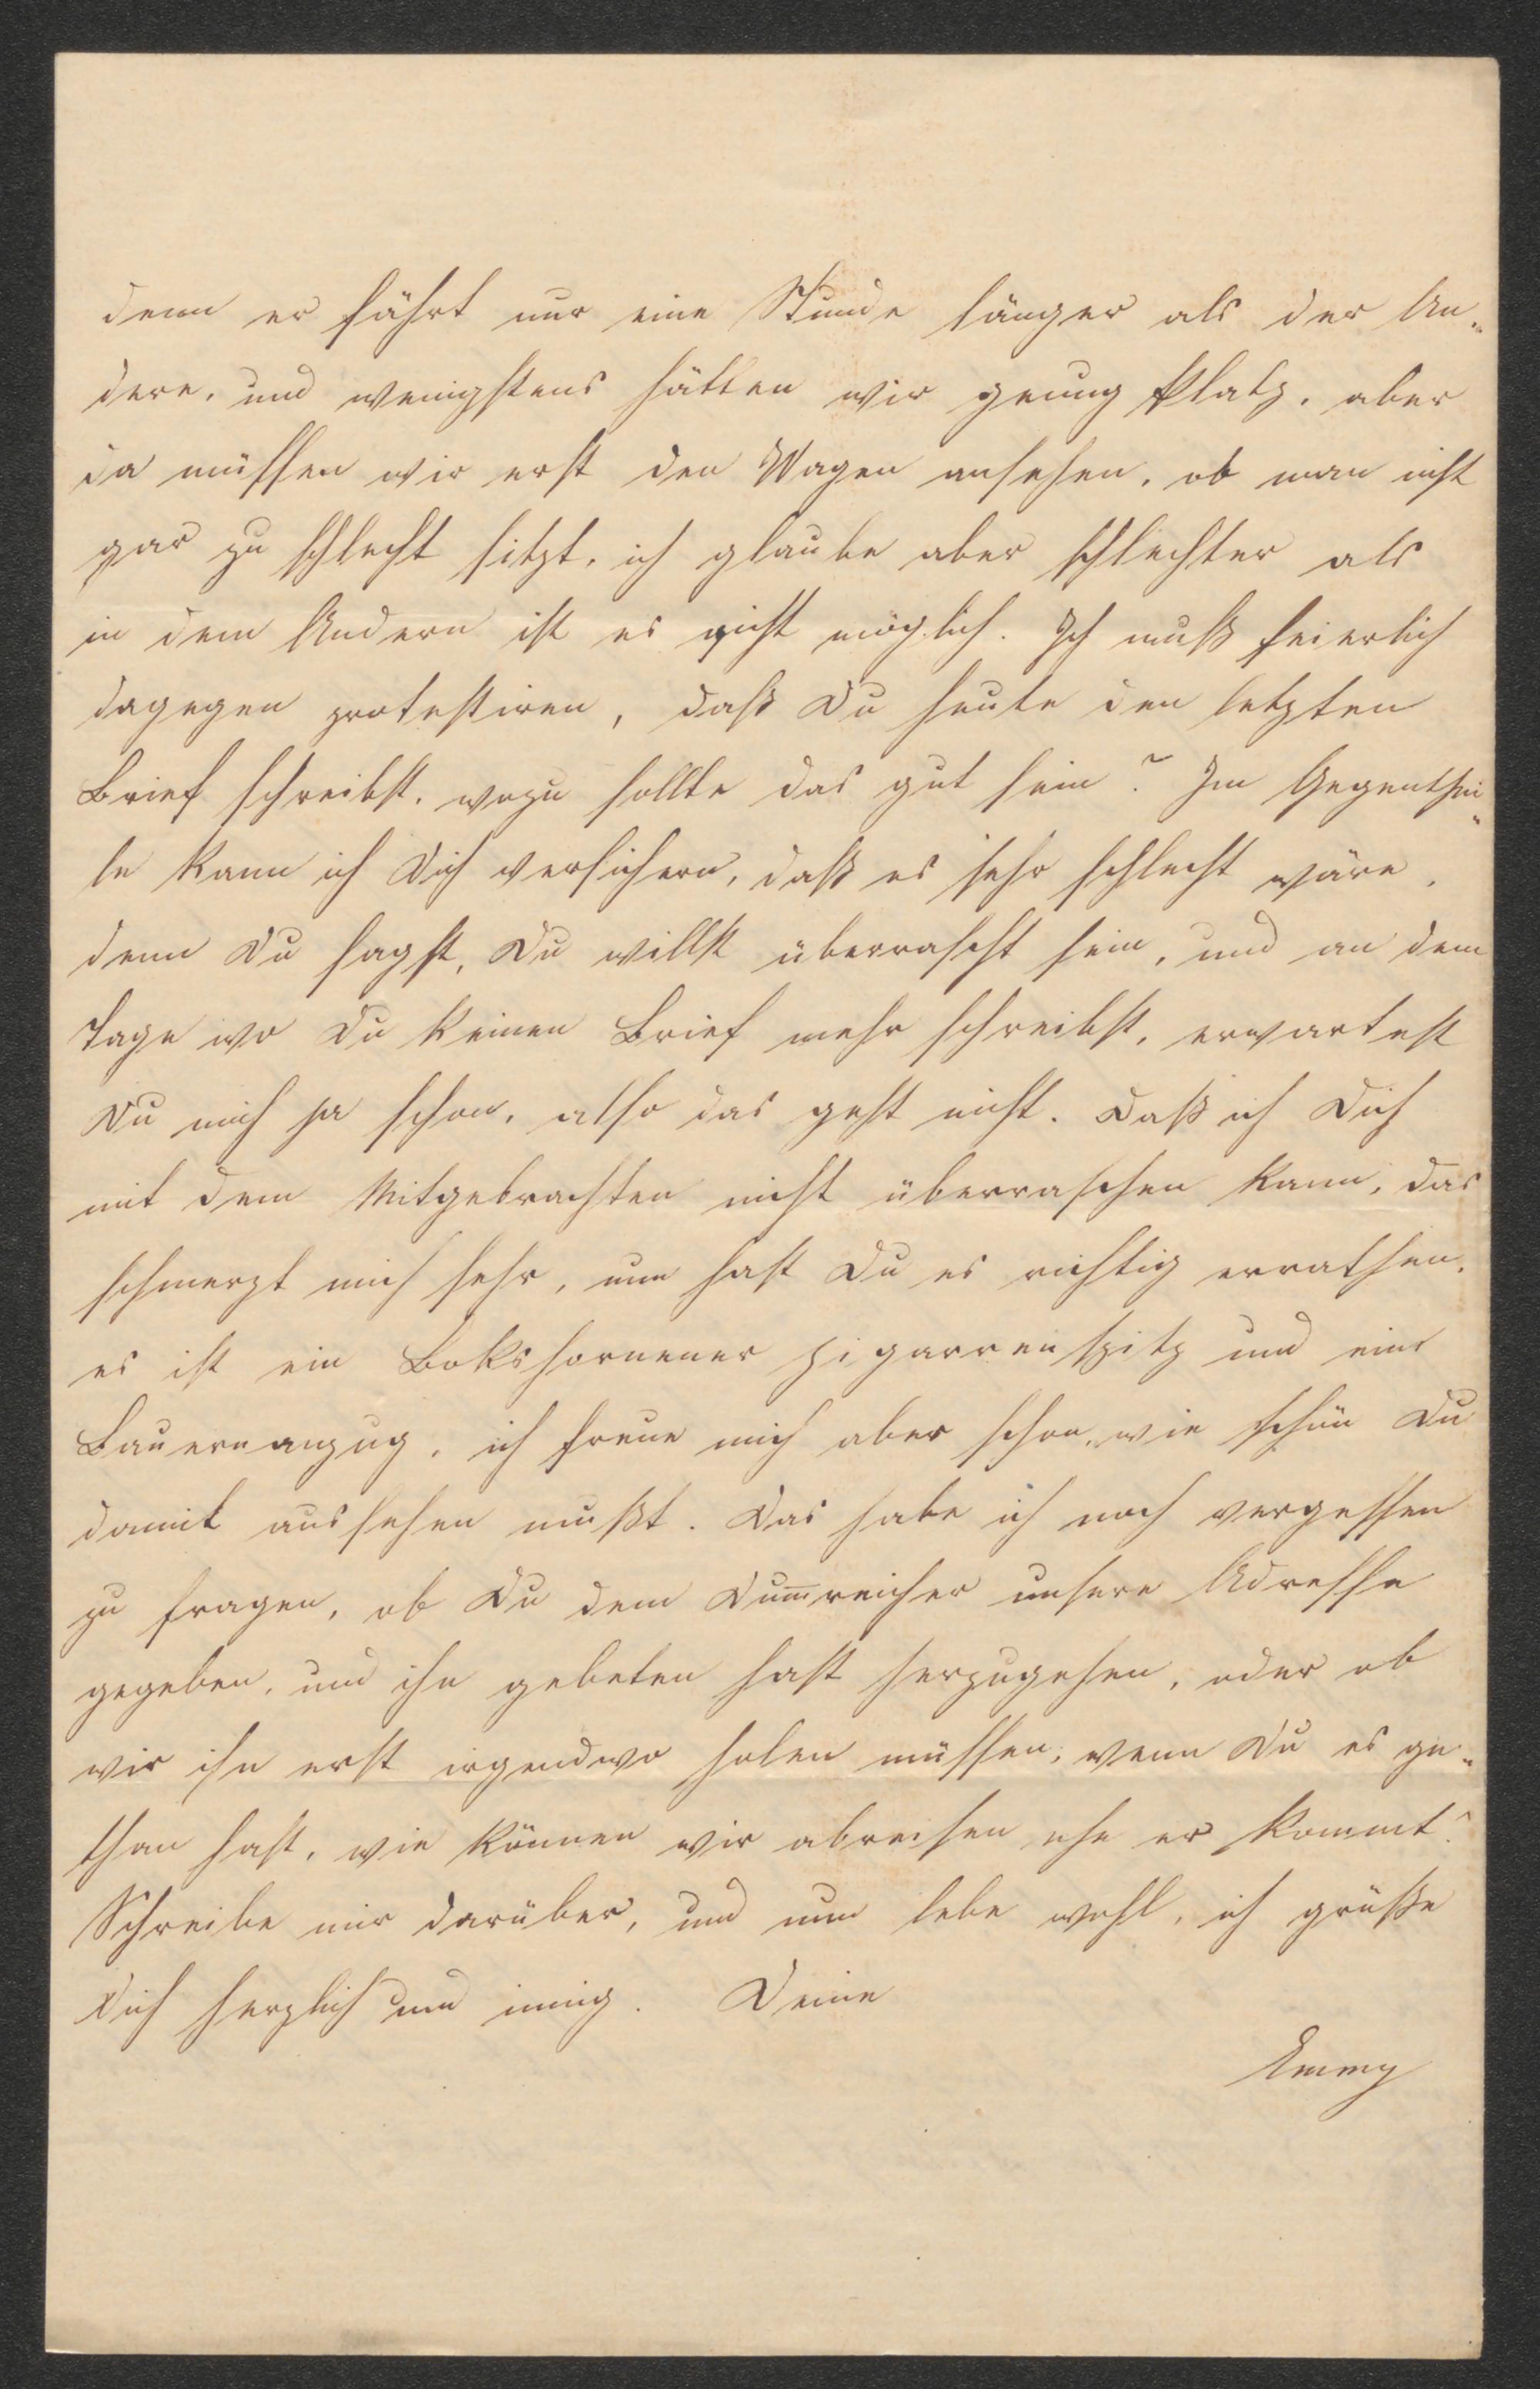 denn er fährt nur eine Stunde länger als der An-
dere, und wenigstens hätten wir genug Platz, aber
da müssen wir erst den Wagen ansehen, ob man nicht
gar zu schlecht sitzt, ich glaube aber schlechter als
in dem Andern ist es nicht möglich. Ich muß feierlich
dagegen protestiren, daß Du heute den letzten
Brief schreibst, wozu sollte das gut sein? Im Gegenthei-
le kann ich Dich versichern, daß es sehr schlecht wäre,
denn Du sagst, Du willst überrascht sein, und an dem
Tage wo Du keinen Brief mehr schreibst, erwartest
Du mich ja schon, also das geht nicht. Daß ich Dich
mit dem Mitgebrachten nicht überraschen kann, das
schmerzt mich sehr, nun hast Du es richtig errathen,
es ist ein Bokshornener Zigarrenspitz und ein
Bauernanzug, ich freue mich aber schon, wie schön Du
damit aussehen mußt. Das habe ich noch vergessen
zu fragen, ob Du dem Dum̅reicher unsere Adresse
gegeben, und ihn gebeten hast herzugehen, oder ob
wir ihn erst irgendwo holen müssen; wenn Du es ge-
than hast, wie können wir abreisen ehe er kommt?
Schreibe mir darüber, und nun lebe wohl, ich grüße
Dich herzlich und innig. Deine
Emmy